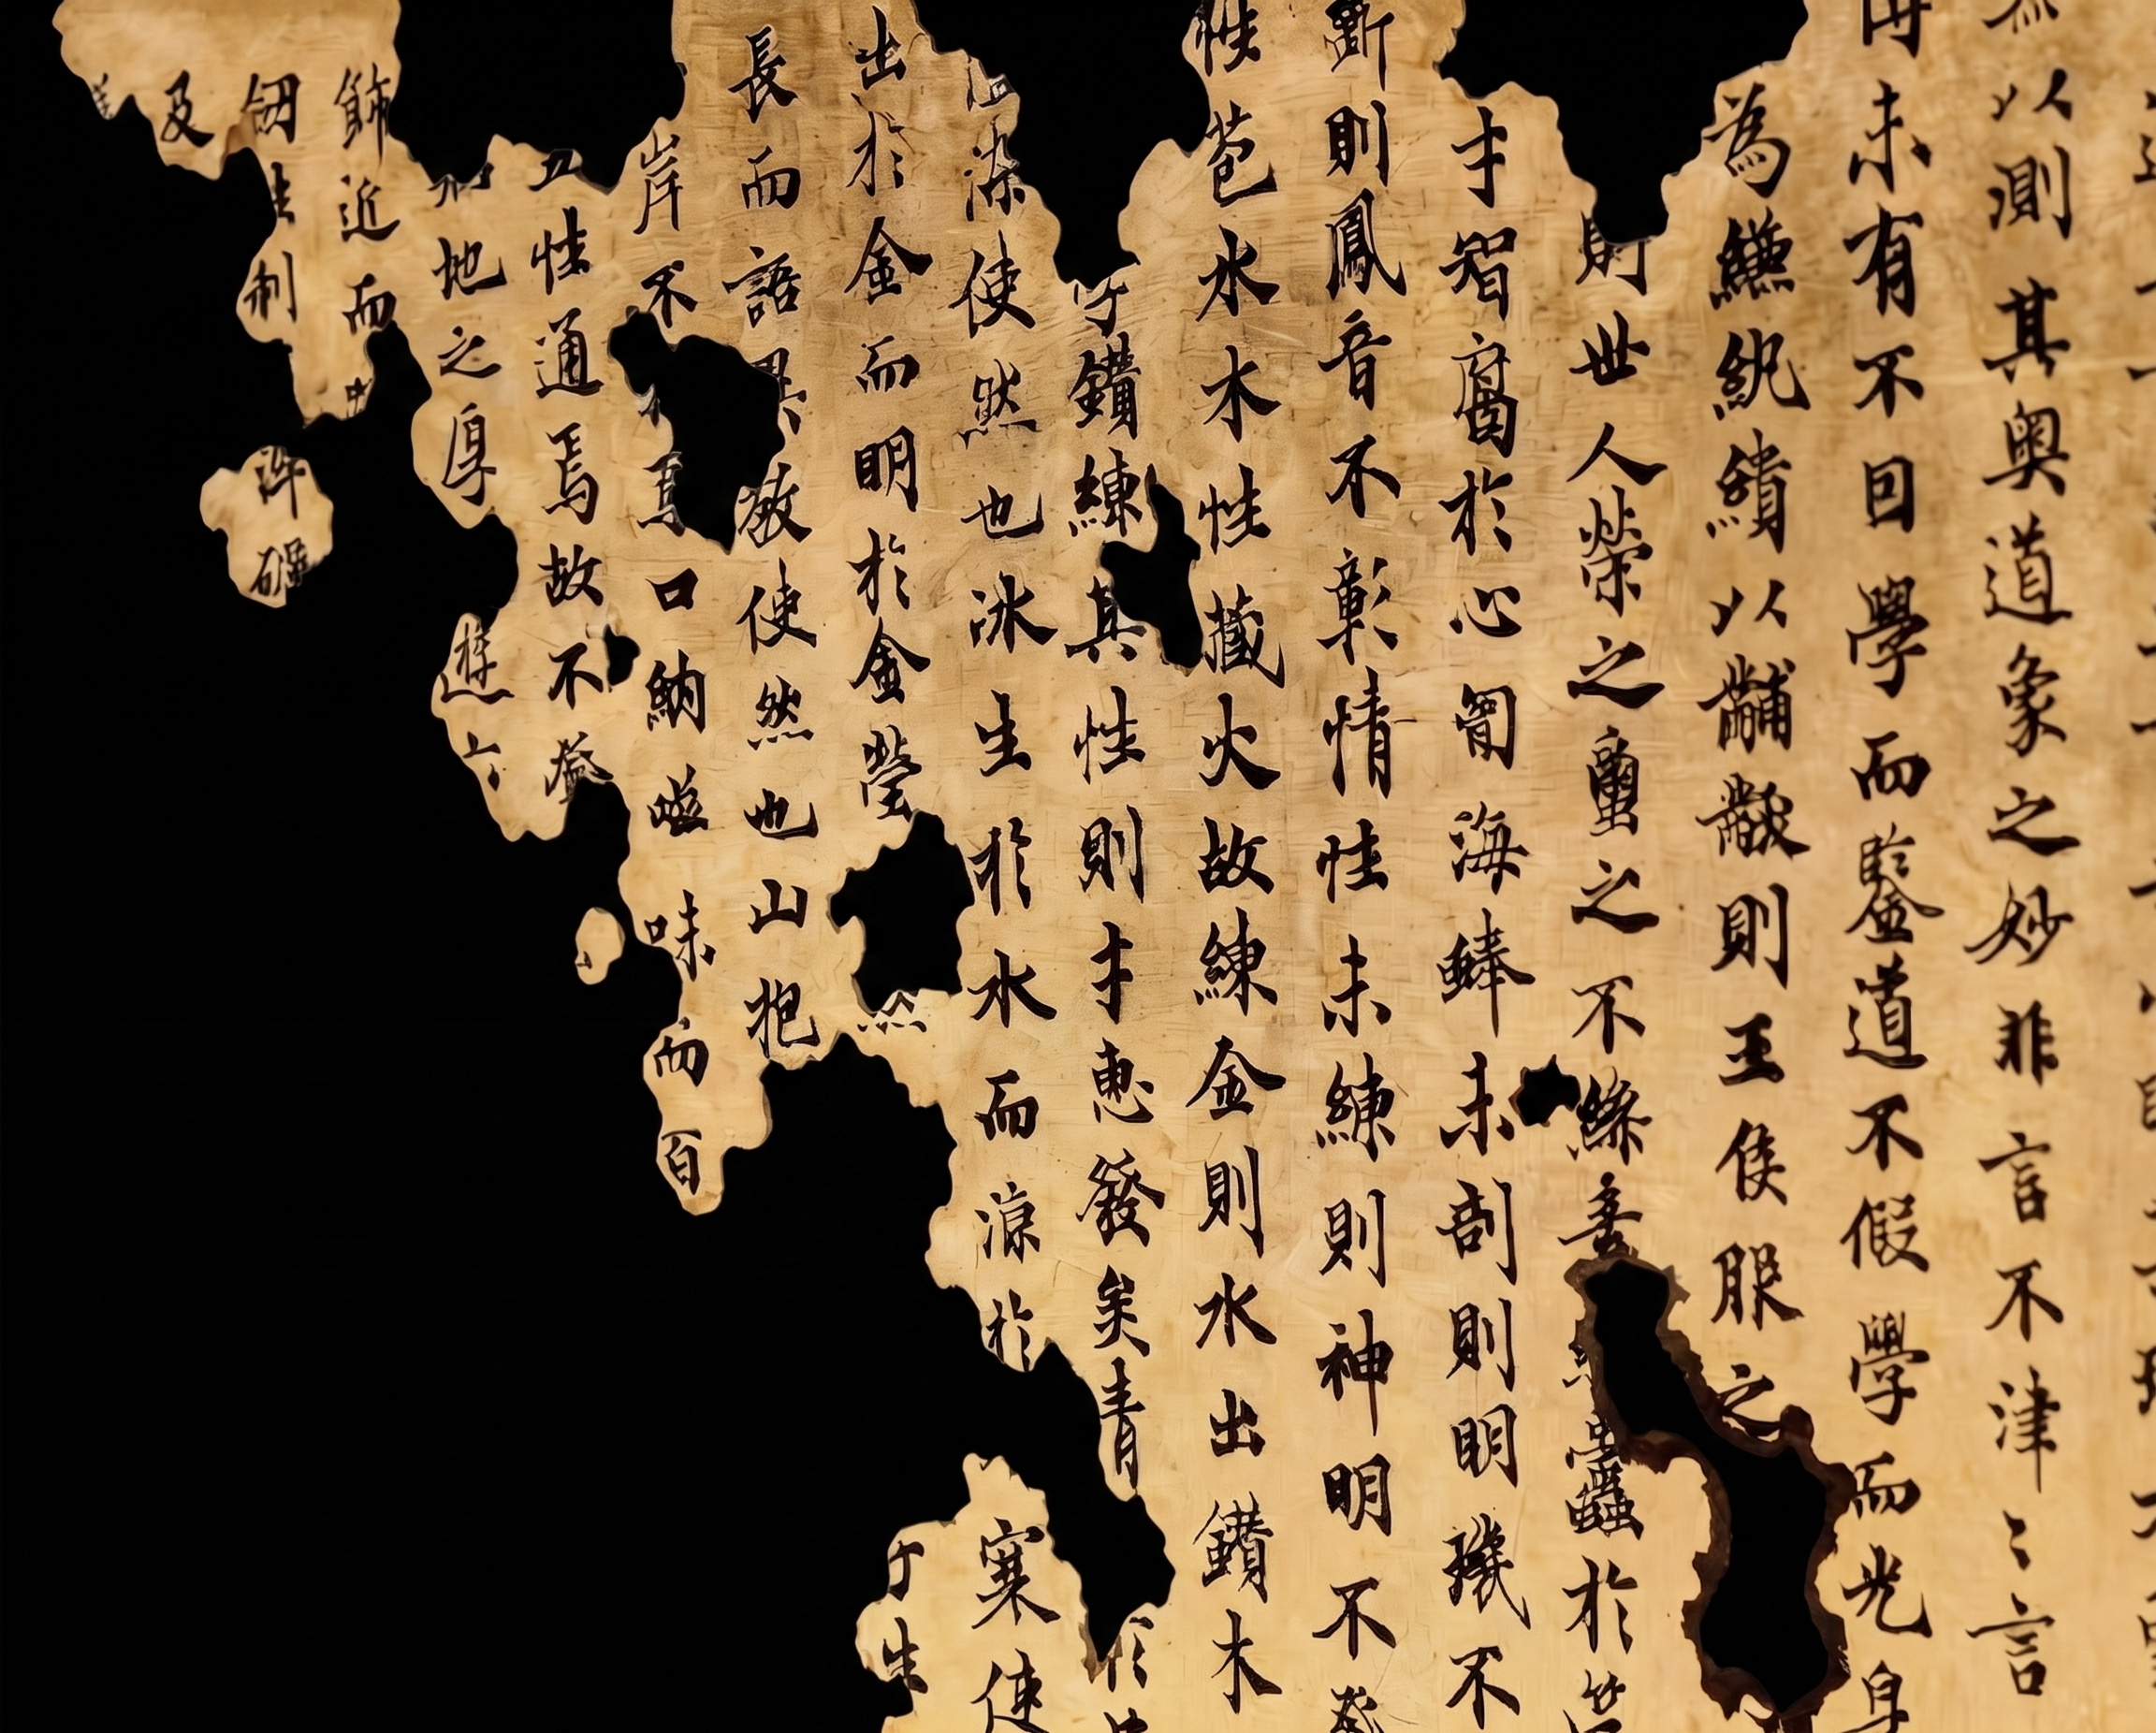 以測其奧道象之妙非言不津〻言
未有不回學而鑒道不假學而光身
為縑紈繢以黼黻則王侯服之
則世人榮之蠒之不絲 蠹於
才智腐於心匈海蜯未剖則明璣不
斷則鳳音不彰情性未練則神明不
性苞水木性藏火故練金則水出鑽木
鑽練其性則才惠發矣青
染使然也冰生於水而涼於 寒使
出於金而明於金瑩 生
長而語異教使然也山抱
岸不 焉口納 味而百
性通焉故不
地之厚 遊六
飾近而
制
及